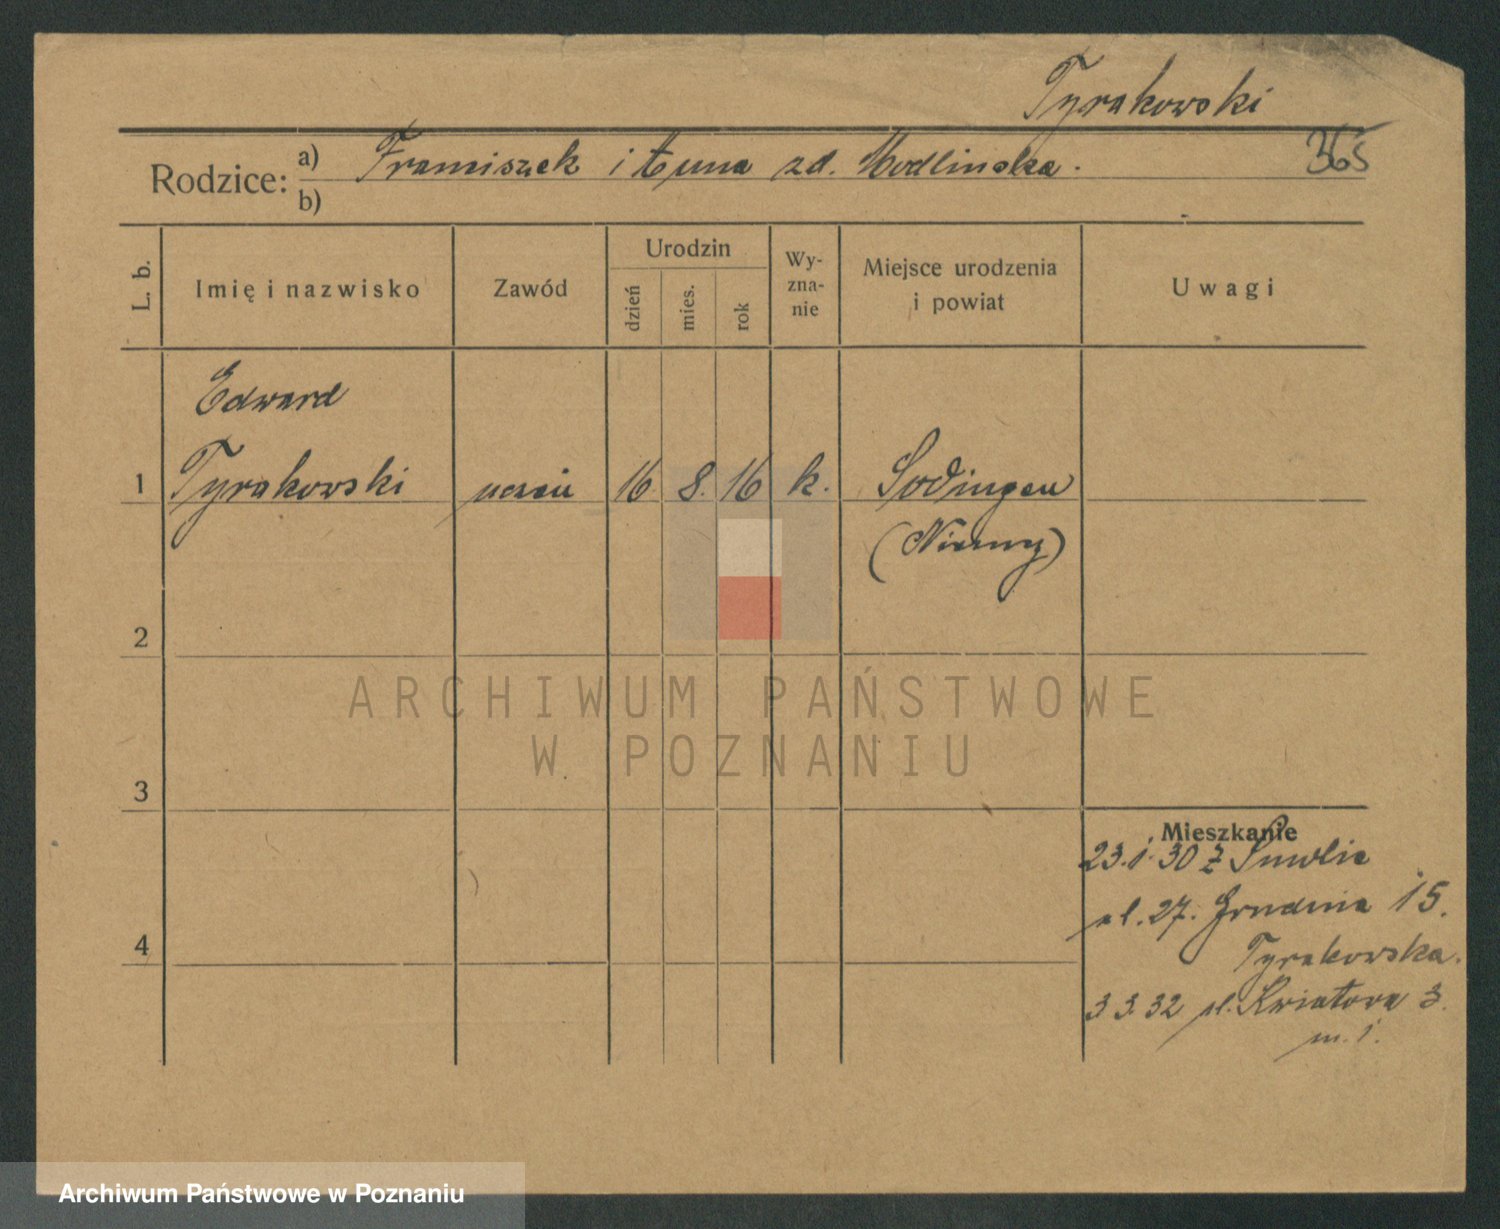 Tyrakowski
365
Rodzice: a) Franciszek i Anna zd. Modlinska.
b)
L. b. Imię i nazwisko Zawód Urodzin dzień mies. rok Wy-zna-nie Miejsce urodzenia i powiat Uwagi
Edward
1 Tyrakowski uczeń 16 8. 16 k. Sodingen
(Niemcy)
2
ARCHIWUM PAŃSTWOWE
W POZNANIU
3
Mieszkanie
23.1.30 z
ul. 27. Grudnia 15.
4 Tyrakowska.
3 3. 32 ul. Kwiatowa 3.
m. 1.
Archiwum Państwowe w Poznaniu